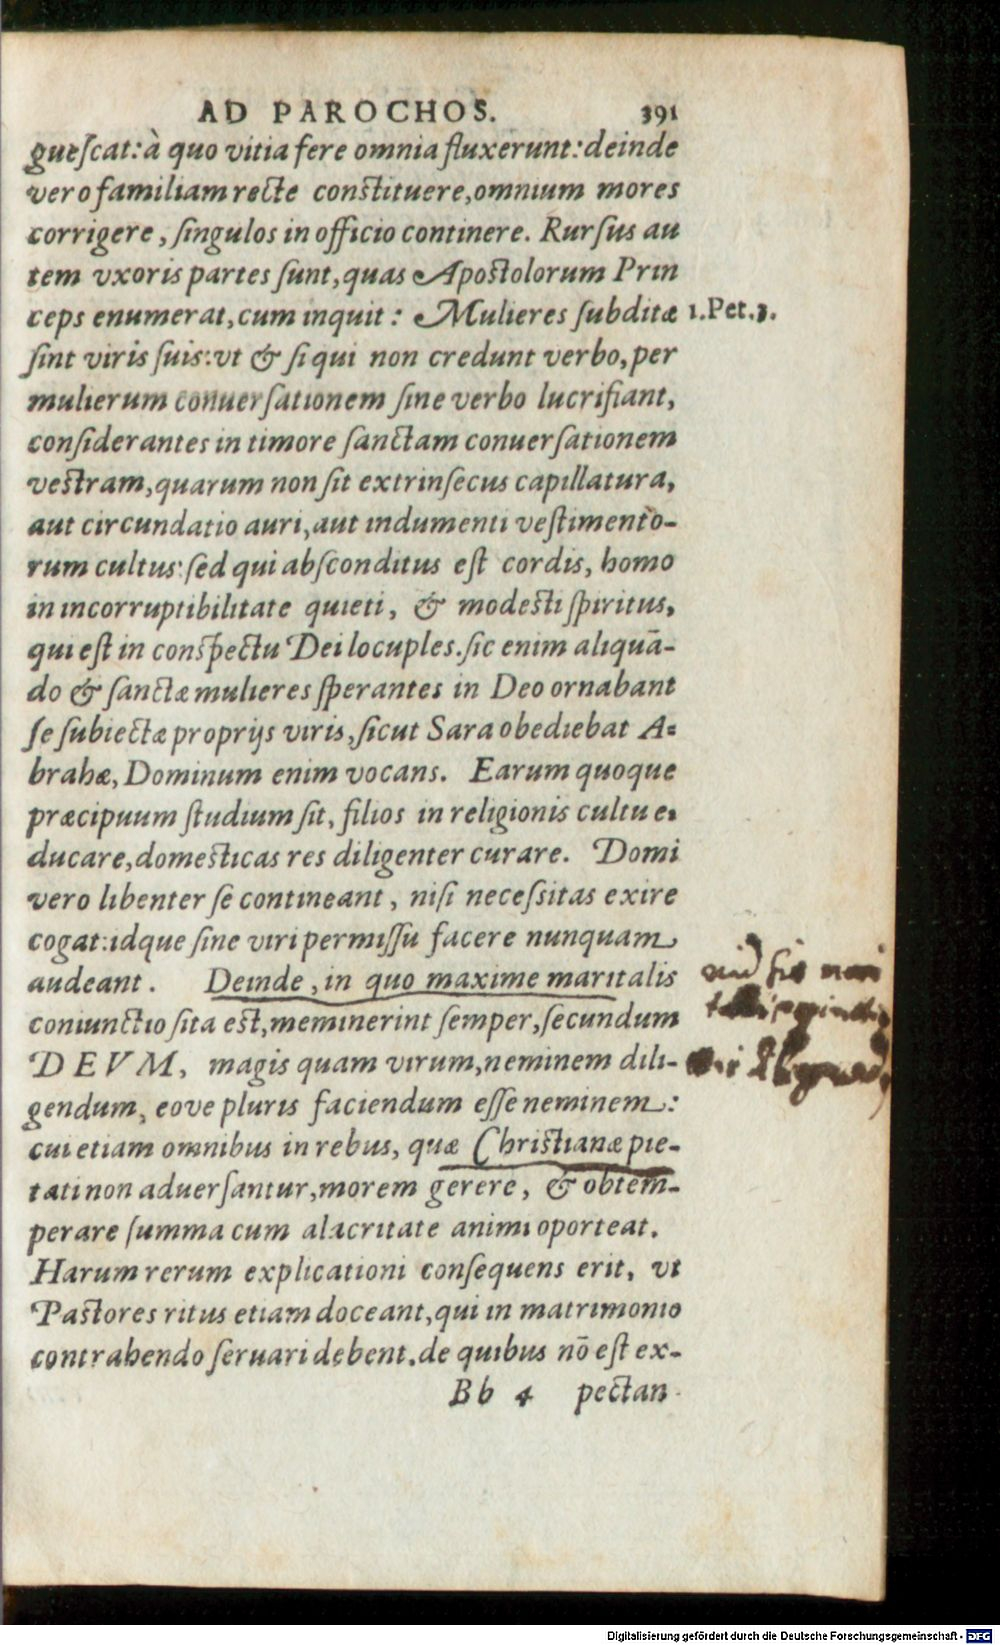 AD PAROCHOS. 391
gueſcat: à quo vitia fere omnia fluxerunt: deinde
vero familiam recte constituere, omnium mores
corrigere, ſingulos in officio continere. Rurſus au
tem vxoris partes ſunt, quas Apostolorum Prin
ceps enumerat, cum inquit: Mulieres ſubditæ 1. Pet. 3.
ſint viris ſuis: vt & ſi qui non credunt verbo, per
mulierum conuerſationem ſine verbo lucrifiant,
conſiderantes in timore ſanctam conuerſationem
vestram, quarum non ſit extrinſecus capillatura,
aut circundatio auri, aut indumenti veſtimento-
rum cultus: ſed qui abſconditus eſt cordis, homo
in incorruptibilitate quieti, & modesti ſpiritus,
qui eſt in conſpectu Dei locuples. ſic enim aliquā-
do & ſanctæ mulieres ſperantes in Deo ornabant
ſe ſubiectæ proprijs viris, ſicut Sara obediebat A-
brahæ, Dominum enim vocans. Earum quoque
præcipuum ſtudium ſit, filios in religionis cultu e-
ducare, domesticas res diligenter curare. Domi
vero libenter ſe contineant, niſi neceſsitas exire
cogat: idque ſine viri permiſſu facere nunquam
audeant. Deinde, in quo maxime maritalis
coniunctio ſita est, meminerint ſemper, ſecundum
DEVM, magis quam virum, neminem dili-
gendum, eove pluris faciendum eſſe neminem:
cui etiam omnibus in rebus, quæ Christianæ pie-
tati non aduerſantur, morem gerere, & obtem-
perare ſumma cum alacritate animi oporteat.
Harum rerum explicationi conſequens erit, vt
Pastores ritus etiam doceant, qui in matrimonio
contrahendo ſeruari debent. de quibus nō eſt ex-
Bb 4 pectan
Digitalisierung gefördert durch die Deutsche Forschungsgemeinschaft - DFG